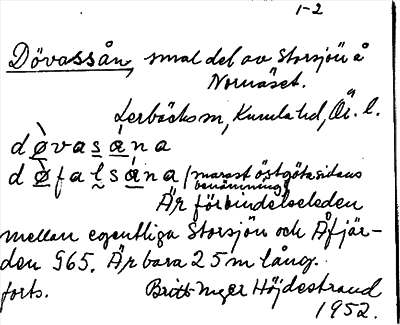 1-2
Dövassån, smal del av Storsjön å
Norrnäset.
Lerbäcks sn, Kumla hd, Ör. l.
dòvasána
dòfalsána (marast östgötasidans
benämning)
Är förbindelseleden
mellan egentliga Storsjön och Åfjär-
den 965. Är bara 25 m lång.
forts. Britt Inger Höjdestrand
1952.